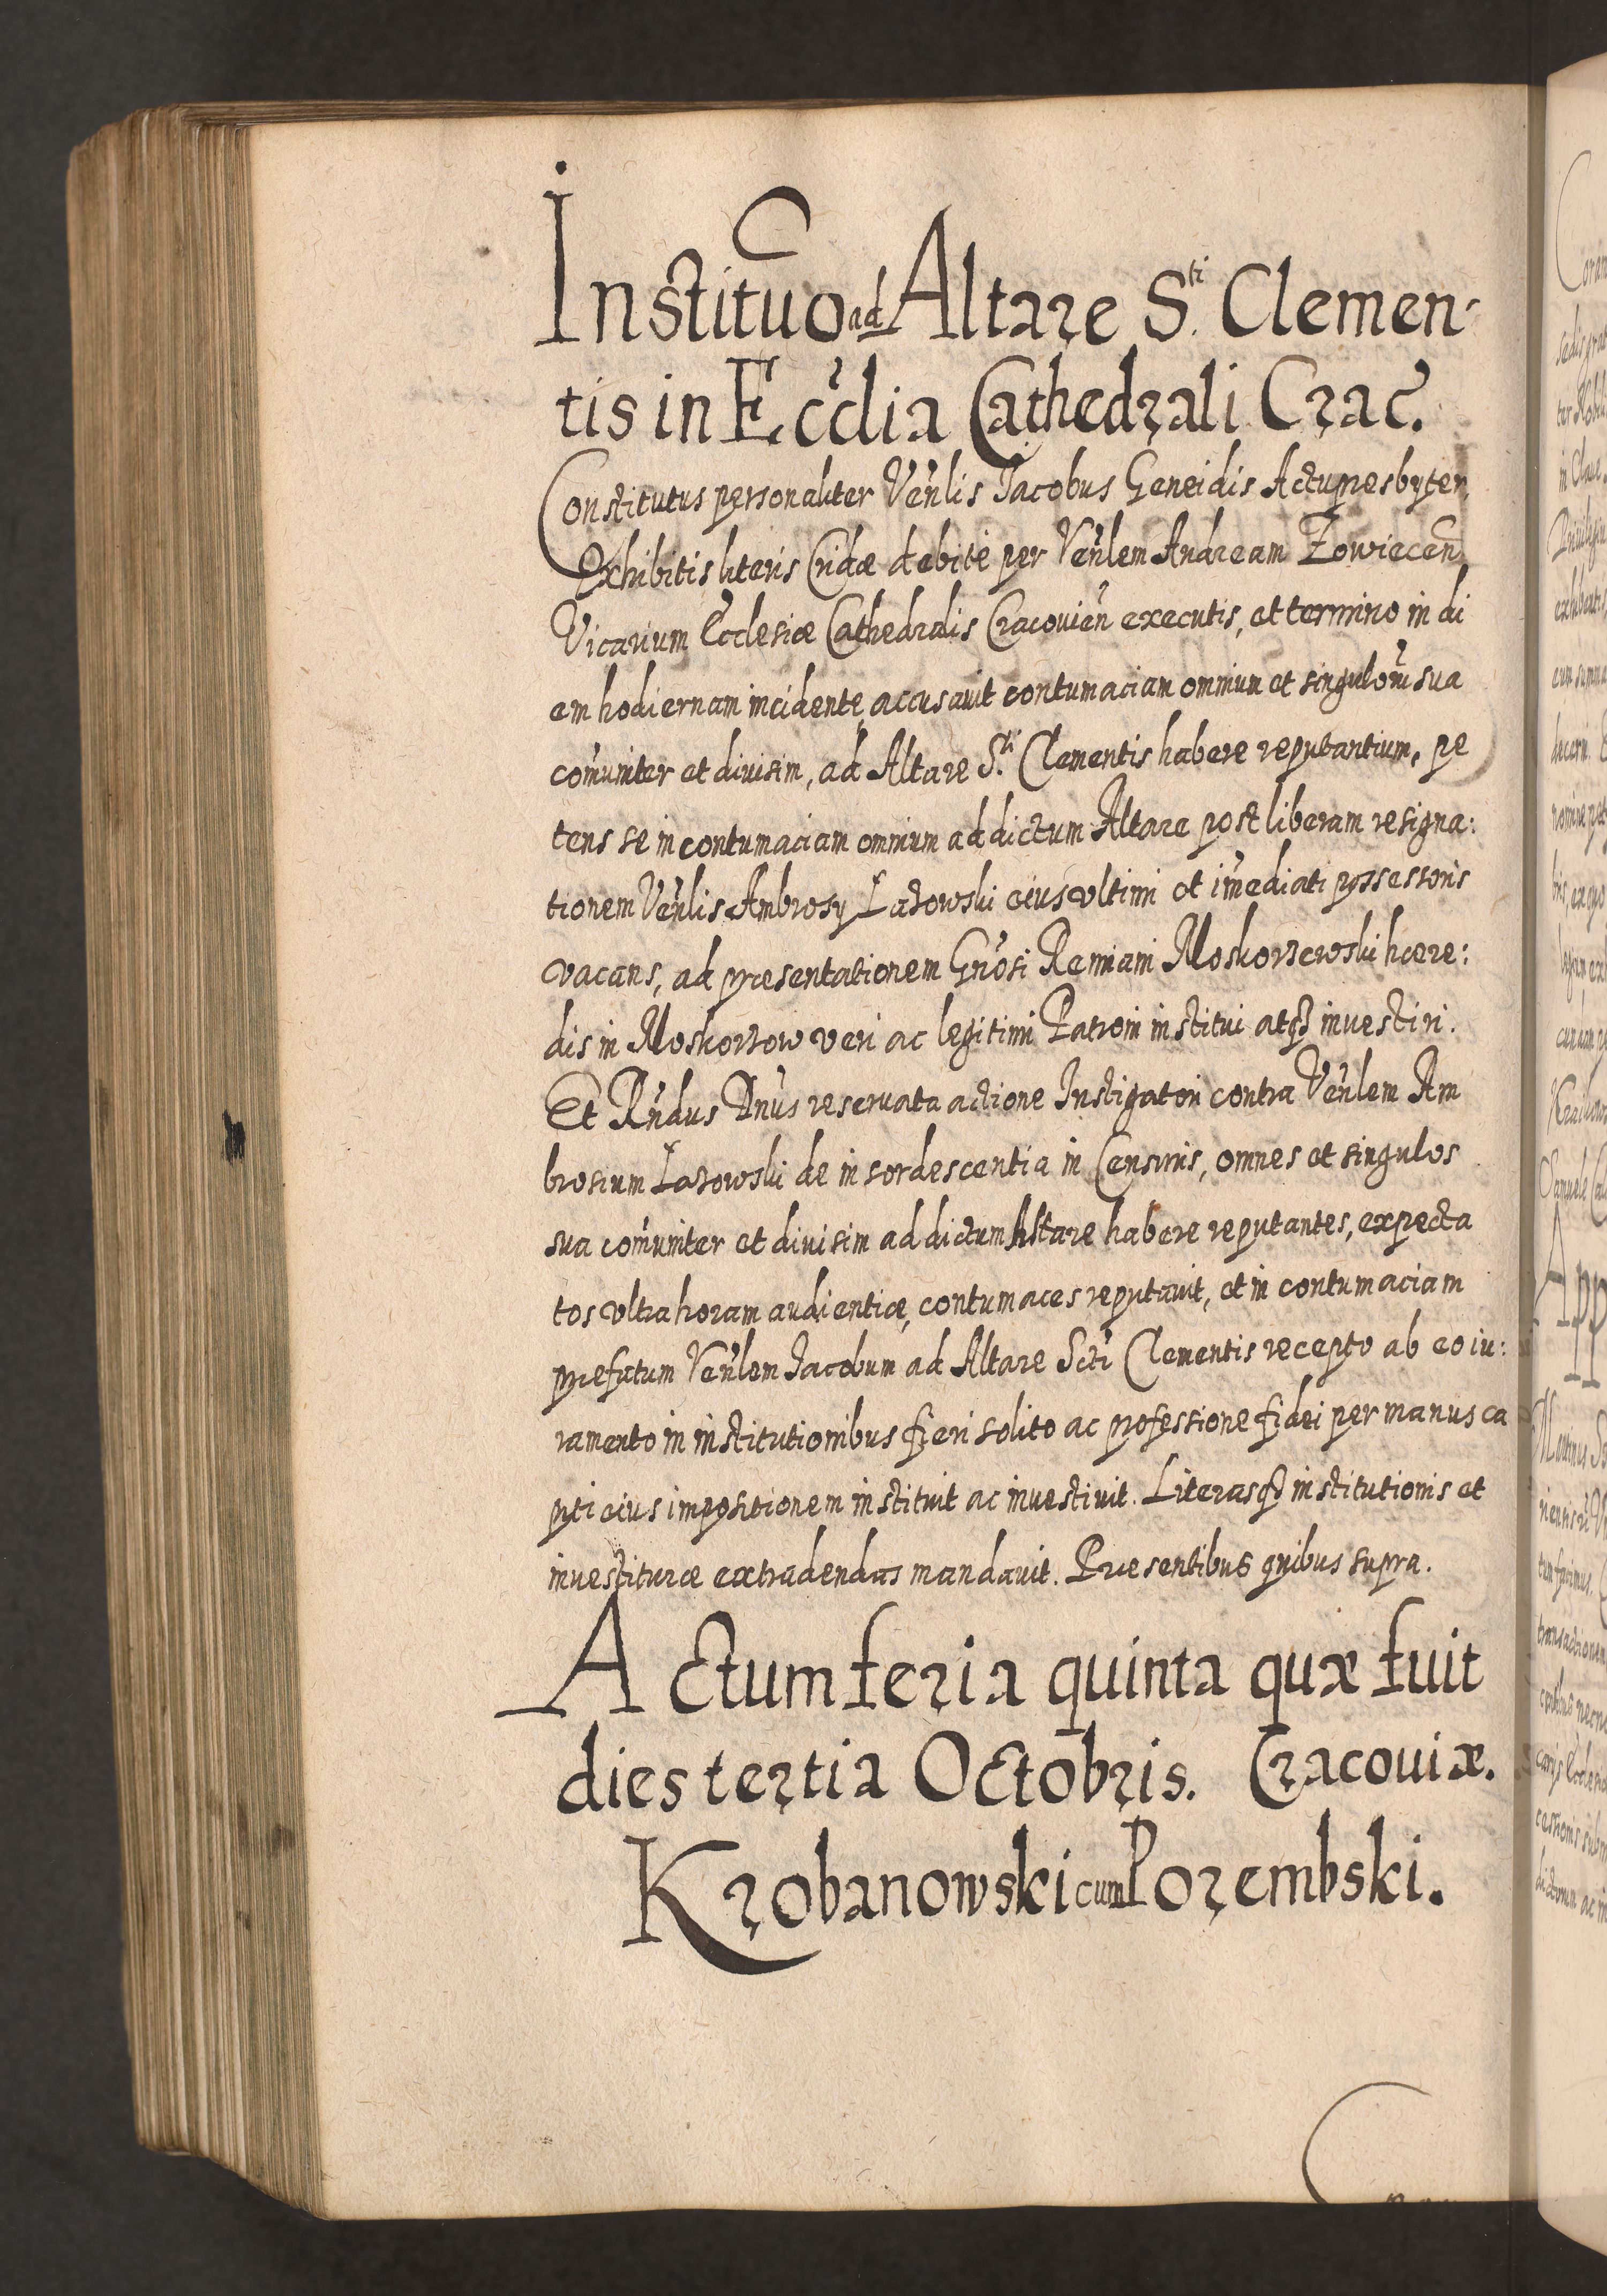 Instituo ad Altare S.ti Clemen-
tis in Eccl̃ia Cathedrali Crac̃.
Constitutus personaliter Ven̄lis Jacobus Geneidis Actupresbyter,
Exhibitis literis Cridæ debite per Ven̄lem Andream Zowiecen̄
Vicarium Ecclesiæ Cathedralis Cracouien̄ executis, et termino in di
em hodiernam incidente accusauit contumaciam omnium et singulorū sua
com̄uniter et diuisim, ad Altare S.ti Clementis habere reputantium, pe
tens se in contumaciam omnium ad dictum Altare post liberam resigna:
tionem Ven̄lis Ambrosy Łazowski eius vltimi et im̄ediati possessoris
vacans, ad præsentationem Gn̄osi Remiani Moskorzewski hære:
dis in Moskorzow veri ac legitimi Patroni institui atq3 inuestiri.
Et Rn̄dus Dn̄us reseruata actione Instigatori contra Ven̄lem Am
brosium Łazowski de insordescentia in Censuris, omnes et singulos
sua com̄uniter et diuisim ad dictum Altare habere reputantes, expecta
tos vltra horam audientiæ, contumaces reputauit, et in contumaciam
præfatum Ven̄lem Jacobum ad Altare Scti Clementis recepto ab eo iu:
ramento in institutionibus fieri solito ac professione fidei per manus ca
pti eius impositionem instituit ac inuestiuit. Literasq3 institutionis et
inuestituræ extradendas mandauit. Præsentibus quibus supra.
Actum feria quinta quæ fuit
dies tertia Octobris. Cracouiæ.
Krobanowski cum Porembski.